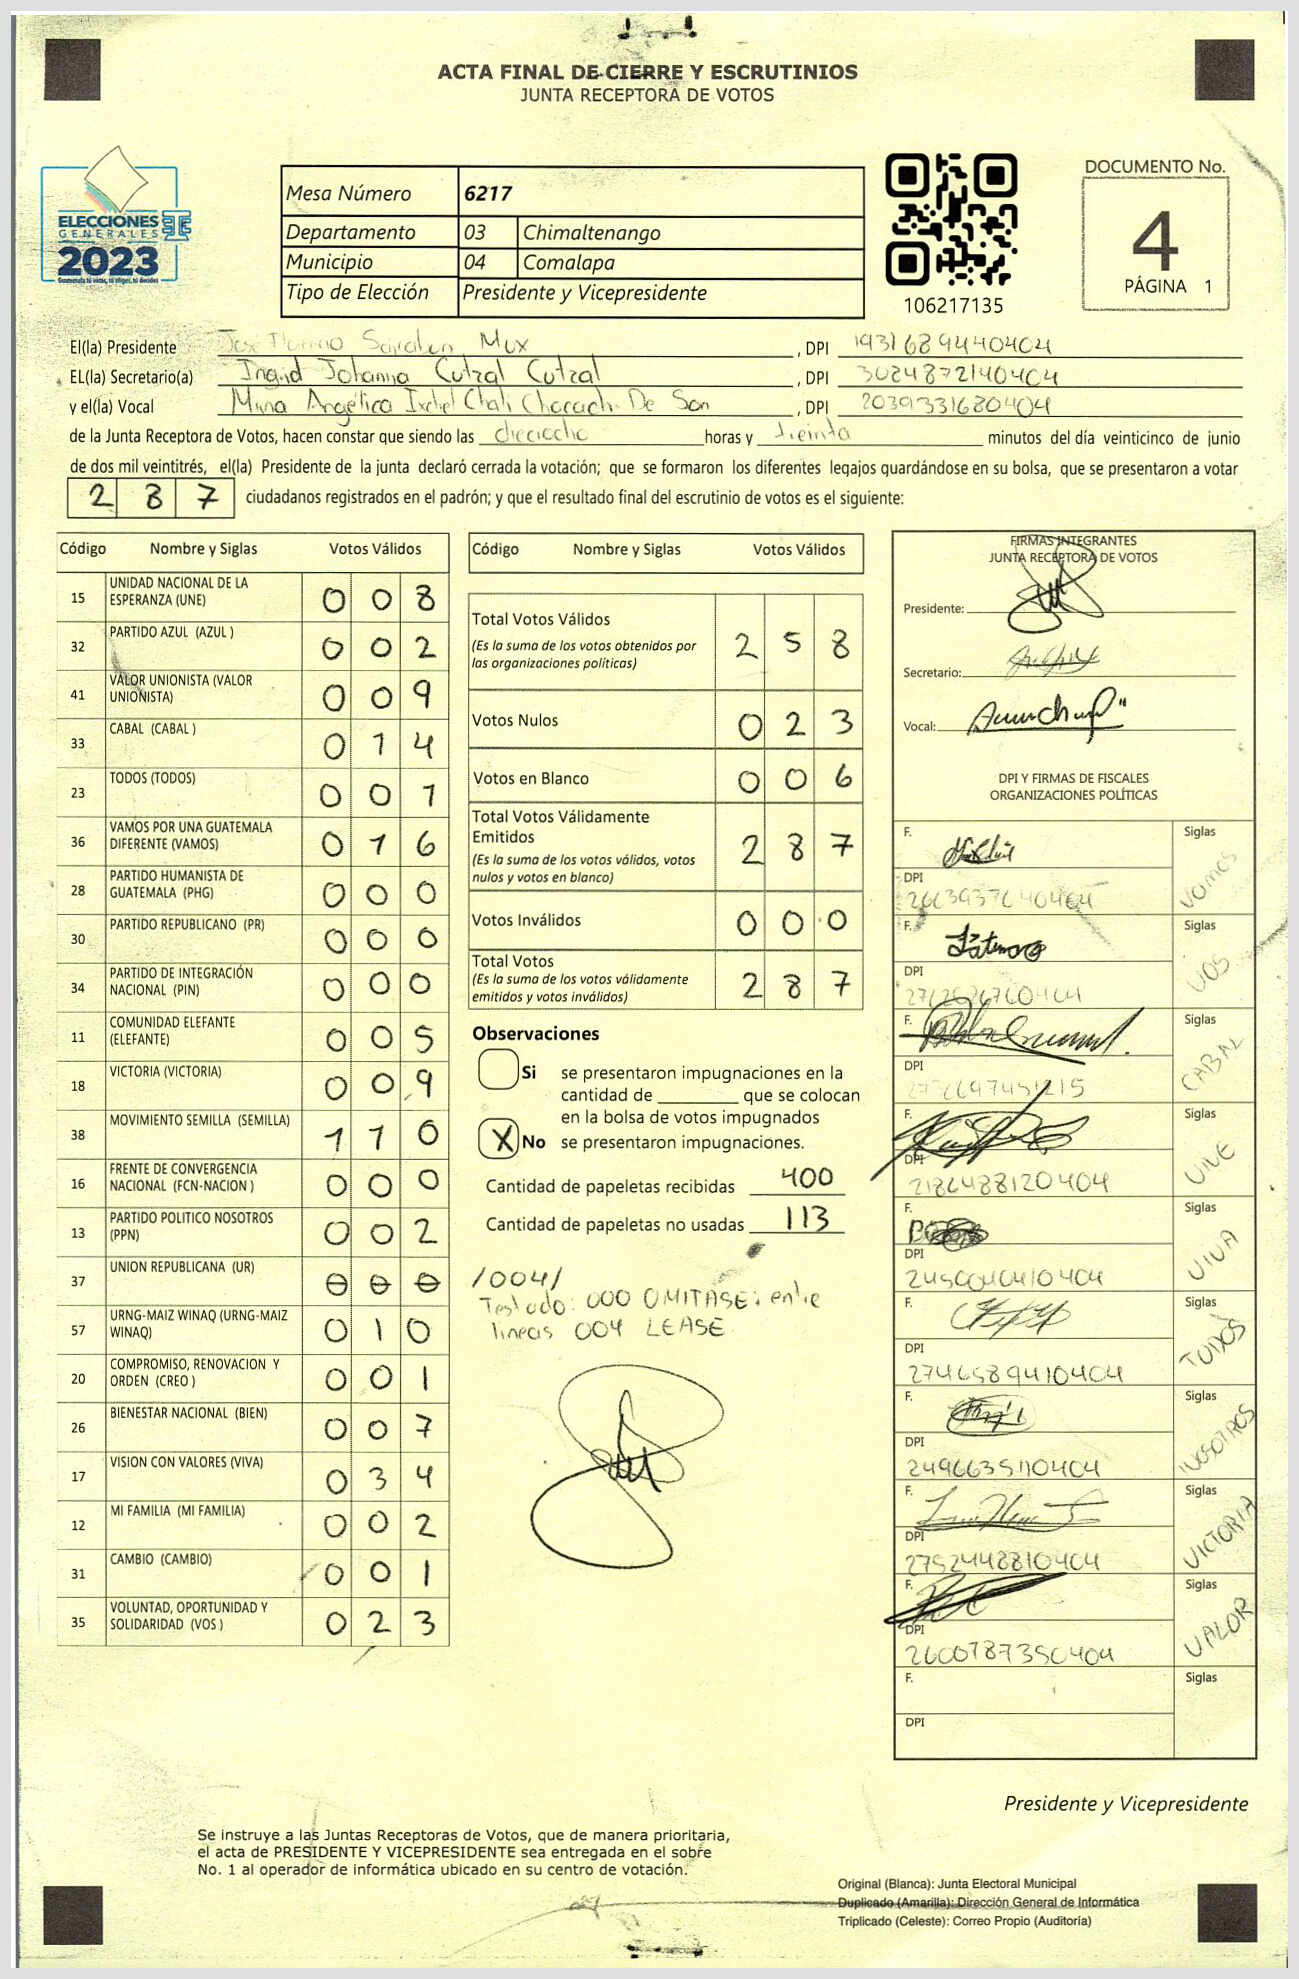 ACTA FINAL DE CIERRE Y ESCRUTINIOS
JUNTA RECEPTORA DE VOTOS
ELECCIONES
GENERALES
2023
Mesa Número 6217
Departamento 03 Chimaltenango
Municipio 04 Comalapa
Tipo de Elección Presidente y Vicepresidente
106217135
DOCUMENTO No.
4
PÁGINA 1
El(la) Presidente Mux , DPI 1931689440404
EL(la) Secretario(a) Ingrid Johanna Cutzal Cutzal , DPI 3024872140404
y el(la) Vocal Angélica Ixchel Chalí De Son , DPI 2039331680404
de la Junta Receptora de Votos, hacen constar que siendo las dieciocho horas y treinta minutos del día veinticinco de junio
de dos mil veintitrés, el(la) Presidente de la junta declaró cerrada la votación; que se formaron los diferentes legajos guardándose en su bolsa, que se presentaron a votar
287 ciudadanos registrados en el padrón; y que el resultado final del escrutinio de votos es el siguiente:
Código Nombre y Siglas Votos Válidos
15 UNIDAD NACIONAL DE LA ESPERANZA (UNE) 008
32 PARTIDO AZUL (AZUL ) 002
41 VALOR UNIONISTA (VALOR UNIONISTA) 009
33 CABAL (CABAL ) 014
23 TODOS (TODOS) 001
36 VAMOS POR UNA GUATEMALA DIFERENTE (VAMOS) 016
28 PARTIDO HUMANISTA DE GUATEMALA (PHG) 000
30 PARTIDO REPUBLICANO (PR) 000
34 PARTIDO DE INTEGRACIÓN NACIONAL (PIN) 000
11 COMUNIDAD ELEFANTE (ELEFANTE) 005
18 VICTORIA (VICTORIA) 009
38 MOVIMIENTO SEMILLA (SEMILLA) 110
16 FRENTE DE CONVERGENCIA NACIONAL (FCN-NACION ) 000
13 PARTIDO POLITICO NOSOTROS (PPN) 002
37 UNION REPUBLICANA (UR) 000
57 URNG-MAIZ WINAQ (URNG-MAIZ WINAQ) 010
20 COMPROMISO, RENOVACION Y ORDEN (CREO ) 001
26 BIENESTAR NACIONAL (BIEN) 007
17 VISION CON VALORES (VIVA) 034
12 MI FAMILIA (MI FAMILIA) 002
31 CAMBIO (CAMBIO) 001
35 VOLUNTAD, OPORTUNIDAD Y SOLIDARIDAD (VOS ) 023
Código Nombre y Siglas Votos Válidos
Total Votos Válidos 258
(Es la suma de los votos obtenidos por
las organizaciones políticas)
Votos Nulos 023
Votos en Blanco 006
Total Votos Válidamente
Emitidos 287
(Es la suma de los votos válidos, votos
nulos y votos en blanco)
Votos Inválidos 000
Total Votos 287
(Es la suma de los votos válidamente
emitidos y votos inválidos)
Observaciones
Si se presentaron impugnaciones en la
cantidad de ________ que se colocan
en la bolsa de votos impugnados
X No se presentaron impugnaciones.
Cantidad de papeletas recibidas 400
Cantidad de papeletas no usadas 113
/004/
Testado: 000 OMITASE: entre
lineas 004 LEASE
FIRMAS INTEGRANTES
JUNTA RECEPTORA DE VOTOS
Presidente:
Secretario:
Vocal:
DPI Y FIRMAS DE FISCALES
ORGANIZACIONES POLÍTICAS
F. Siglas Vamos
DPI
F. Siglas VOS
DPI
F. Siglas CABAL
DPI
F. Siglas VILE
DPI 2186488120404
F. Siglas VIVA
DPI 2450040410404
F. Siglas TODOS
DPI 2746589410404
F. Siglas NOSOTROS
DPI 2496635110404
F. Siglas VICTORIA
DPI 2752448810404
F. Siglas VALOR
DPI 2600787350404
F. Siglas
DPI
Presidente y Vicepresidente
Se instruye a las Juntas Receptoras de Votos, que de manera prioritaria,
el acta de PRESIDENTE Y VICEPRESIDENTE sea entregada en el sobre
No. 1 al operador de informática ubicado en su centro de votación.
Original (Blanca): Junta Electoral Municipal
Duplicado (Amarilla): Dirección General de Informática
Triplicado (Celeste): Correo Propio (Auditoría)